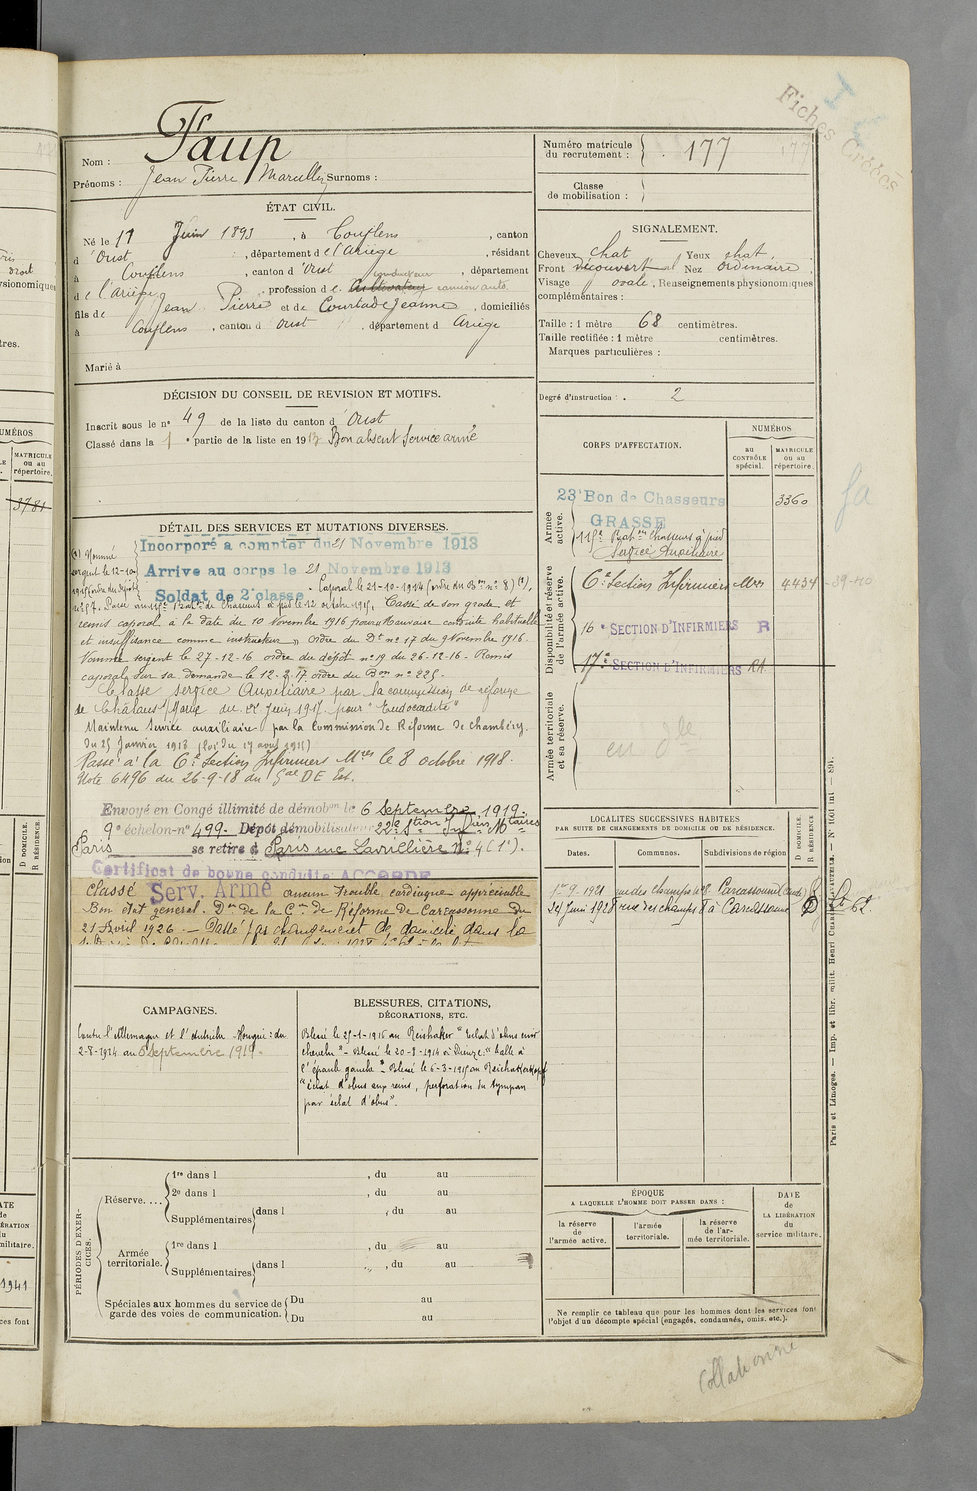 Fiches Créées
Nom : Faup
Prénoms : Jean Pierre Marcellin Surnoms :
Numéro matricule du recrutement : 177
Classe de mobilisation :
ÉTAT CIVIL.
Né le 11 Juin 1893, à Couflens, canton
d'Oust, département de l'Ariège, résidant
à Couflens, canton d'Oust, département
conducteur
de l'ariège, profession de Cultivateur camion auto
fils de Jean Pierre et de Courtade Jeanne, domiciliés
à Couflens, canton d Oust, département d Ariège
Marié à
SIGNALEMENT.
Cheveux chat Yeux chat.
Front découvert Nez ordinaire
Visage ovale, Renseignements physionomiques
complémentaires :
Taille : 1 mètre 68 centimètres.
Taille rectifiée : 1 mètre centimètres.
Marques particulières :
Degré d'instruction : 2
DÉCISION DU CONSEIL DE REVISION ET MOTIFS.
Inscrit sous le n° 49 de la liste du canton d'Oust
Classé dans la 1e partie de la liste en 1913 Bon absent Service armé
DÉTAIL DES SERVICES ET MUTATIONS DIVERSES.
Incorporé a compter du 21 Novembre 1913
Arrive au corps le 21 Novembre 1913
Soldat de 2e classe. Caporal le 21-10-1914 (ordre du Bon n° 8) (1).
(1) Nommé
sergent le 12-10-
1915 (ordre du dépôt
n° 57. Passé au 115e Batn de Chasseurs à pied le 12 octobre 1915. Cassé de son grade et
remis caporal à la date du 10 Novembre 1916 pour Mauvaise conduite habituelle
et insuffisance comme instructeur" ordre du Dt n° 17 du 9 Novembre 1916.
Nommé sergent le 27-12-16 ordre du dépôt n° 19 du 26-12-16 - Remis
caporal sur sa demande le 12-2-17 ordre du Bon n° 225.
Classé service Auxiliaire par la commission de réforme
de Châlons s/Marne du 22 Juin 1917 pour "Endocardite"
Maintenu Service auxiliaire par la Commission de Réforme de Chambéry
du 25 Janvier 1918 (loi du 17 août 1915)
Passé à la 6e Section Infirmiers Mres le 8 octobre 1918.
Note 6496 du 26-9-18 du Gal DE Est.
Envoyé en Congé illimité de démobon le 6 Septembre 1919.
9e échelon-n° 499. Dépôt démobilisateur 22e Stion Infiers Mtaires
Paris se retire à Paris rue Lavrillière N° 4 (1e).
Certificat de bonne conduite ACCORDE
classé Serv. Armé aucun trouble cardiaque appréciable
Bon état général. Don de la Con de Réforme de Carcassonne du
21 Avril 1926. - Passé par changement de domicile dans la
CORPS D'AFFECTATION.
NUMÉROS
AU CONTRÔLE spécial.
MATRICULE ou au répertoire.
Armée active.
23e Bon de Chasseurs 3360
GRASSE
115e Batn Chasseurs à pied
Service Auxiliaire
Disponibilité et réserve de l'armée active.
6e Section Infirmiers Mres 4434
16e SECTION D'INFIRMIERS R
17e SECTION D'INFIRMIERS RA
Armée territoriale et sa réserve.
en dlle
LOCALITÉS SUCCESSIVES HABITÉES
PAR SUITE DE CHANGEMENTS DE DOMICILE OU DE RÉSIDENCE.
Dates. Communes. Subdivisions de région
D DOMICILE. R RÉSIDENCE.
1er 9. 1921 rue des champs n° 8 Carcassonne (Aude)
24 Juin 1928 8 rue des champs à Carcassonne D
CAMPAGNES.
Contre l'Allemagne et l'Autriche-Hongrie : du
2-8-1914 au 6 Septembre 1919.
BLESSURES, CITATIONS,
DÉCORATIONS, ETC.
Blessé le 25-1-1916 au Reishaker "éclat d'obus cuir
chevelu" - Blessé le 20-8-1914 à Dieuze : "balle à
l'épaule gauche" - Blessé le 6-3-1915 au Reichakerkopf
"éclat d'obus aux reins, perforation du tympan
par éclat d'obus".
PÉRIODES D'EXERCICES.
Réserve....
1re dans l , du au
2e dans l , du au
Supplémentaires dans l , du au
Armée territoriale.
1re dans l , du au
Supplémentaires dans l , du au
Spéciales aux hommes du service de garde des voies de communication.
Du au
Du au
ÉPOQUE
A LAQUELLE L'HOMME DOIT PASSER DANS :
la réserve de l'armée active.
l'armée territoriale.
la réserve de l'armée territoriale.
DATE de LA LIBÉRATION du service militaire.
Ne remplir ce tableau que pour les hommes dont les services font
l'objet d'un décompte spécial (engagés, condamnés, omis. etc.).
Collationné